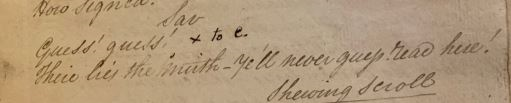 How signed.
Sav
Guess! guess! x to e.
There lies the mirth - Ye'll never guess! read here!
Shewing scroll